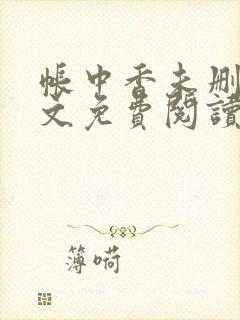 帳中香未删
文免費閱讀
簿嗬